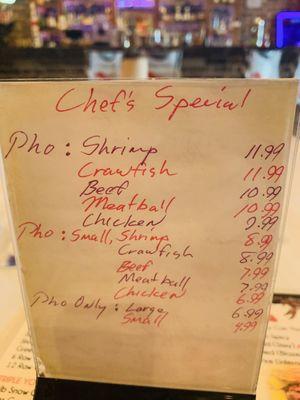 Chef's Special
Pho: Shrimp 11.99
Crawfish 11.99
Beef 10.99
Meatball 10.99
Chicken 9.99
Pho: Small, Shrimp 8.99
Crawfish 8.99
Beef 7.99
Meatball 7.99
Chicken 6.99
Pho Only: Large, 6.99
Small 4.99